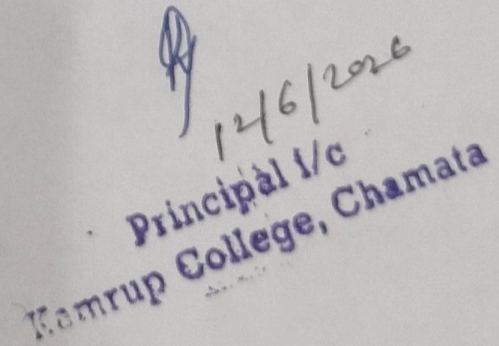 12/6/2026
Principal i/c
Kamrup College, Chamata